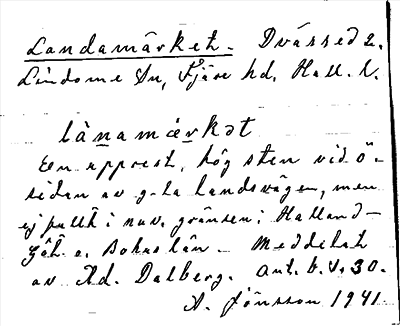 Landamärket. Dvärred 2.
Lindome Sn, Fjäre hd, Hall. l.
lànamǽrkət
En upprest, hög sten vid ö-
sidan av g-la landsvägen, men
ej fullt i nuv. gränsen i Halland-
Göt. o. Bohuslän. Meddelat
av Ad. Dalberg. Ant. b. V. 30.
A. Jönsson 1941.